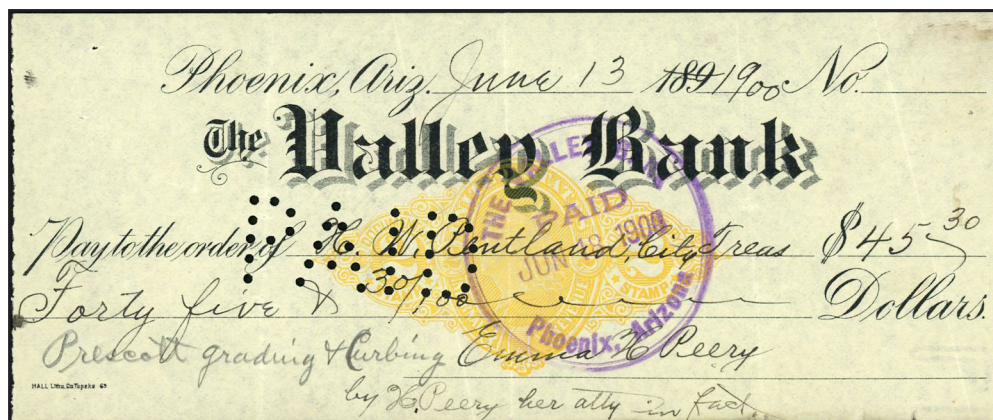 Phoenix, Ariz. June 13 1891900 No.
The Valley Bank
THE VALLEY BANK
PAID
JUN 18 1900
Phoenix, Arizona
Pay to the order of H. W. Pentland, City Treas $45 30
STAMP
Forty five & 30/100 Dollars.
Prescott grading & Curbing Emma H Peery
HALL Litho. Co Topeka 63
by H. Peery her atty in fact.